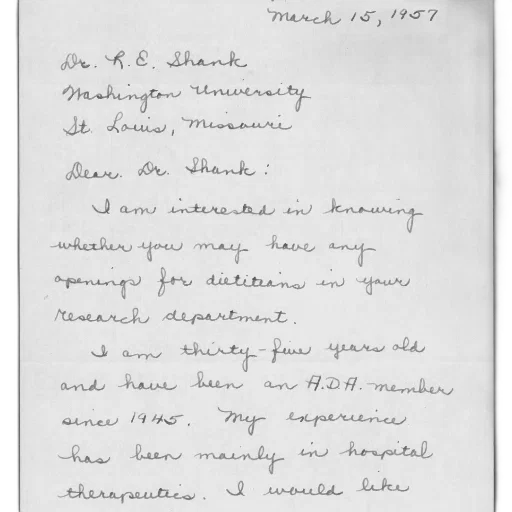 March 15, 1957
Dr. R. E. Shank
Washington University
St. Louis, Missouri
Dear Dr. Shank:
I am interested in knowing
whether you may have any
openings for dietitians in your
research department.
I am thirty-five years old
and have been an A.D.A. member
since 1945. My experience
has been mainly in hospital
therapeutics. I would like